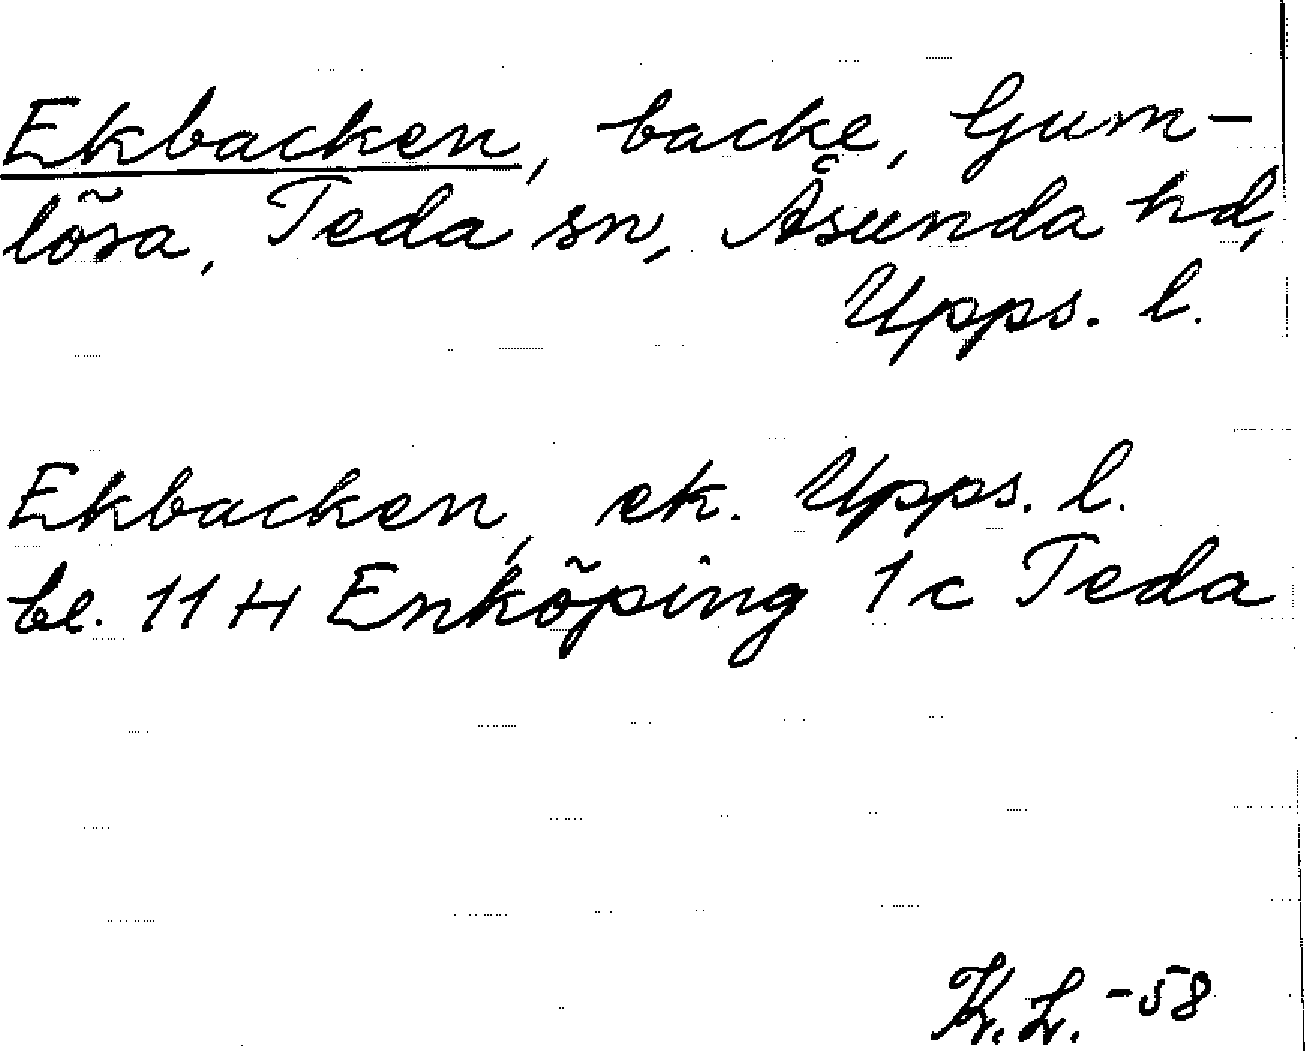 Ekbacken, backe, Gum-
lösa, Teda sn, Åsunda hd,
Upps. l.
Ekbacken, ek. Upps. l.
bl. 11 H Enköping 1 c Teda
K. L. -58